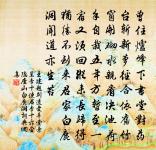 曾住爐峰下書堂對藥
台斬新蘿徑合依舊竹
窗開砌水親看決池荷
手自栽五年方暫至一
宿又須回縱未長歸得
猶勝不到來君家白鹿
洞聞道亦生苔
題別遺愛草堂兼
呈李十使君李十亦嘗
隱廬山白鹿洞